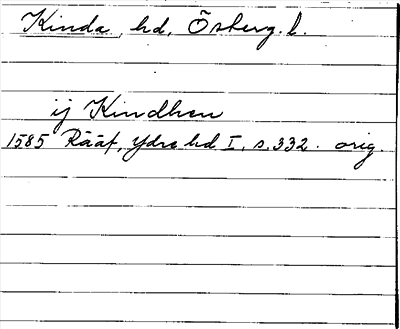 Kinda, hd, Österg. l.
ij Kindhen
1585 Rääf, Ydre hd I, s. 332. orig.